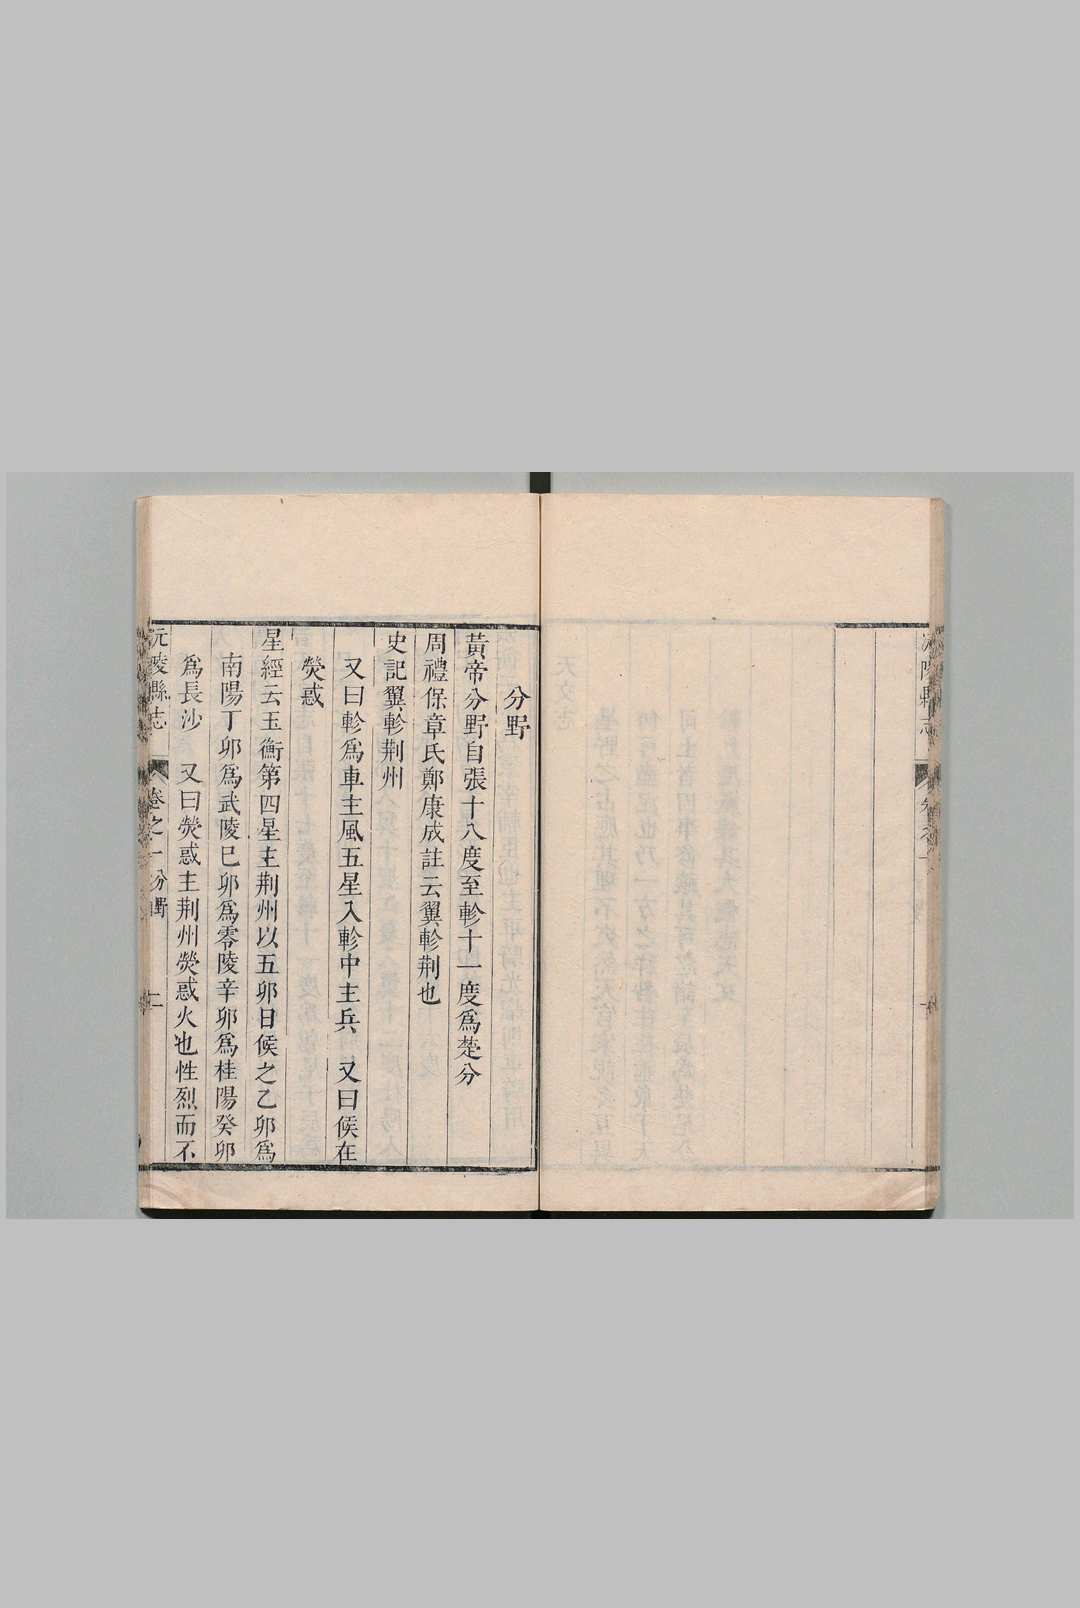 分野
黃帝分野自張十八度至軫十一度爲楚分
周禮保章氏鄭康成註云翼軫荆也
史記翼軫荆州
又曰軫爲車主風五星入軫中主兵 又曰候在
熒惑
星經云玉衡第四星主荆州以五卯日候之乙卯爲
南陽丁卯爲武陵巳卯爲零陵辛卯爲桂陽癸卯
爲長沙 又曰熒惑主荆州熒惑火也性烈而不
沅陵縣志 卷之一 分野 二